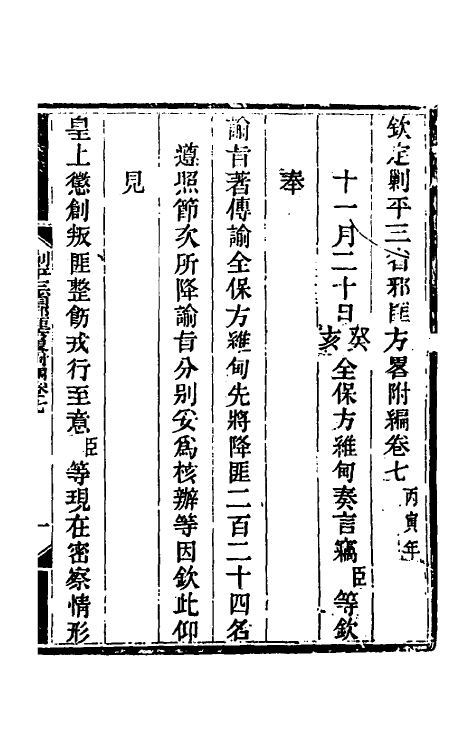 欽定剿平三省邪匪方畧附編卷七丙寅年
十一月二十日癸亥全保方維甸奏言竊臣等欽
奉
諭旨著傳諭全保方維甸先將降匪二百二十四名
遵照節次所降諭旨分别妥為核辦等因欽此仰
見
皇上懲創叛匪整飭戎行至意臣等現在密察情形